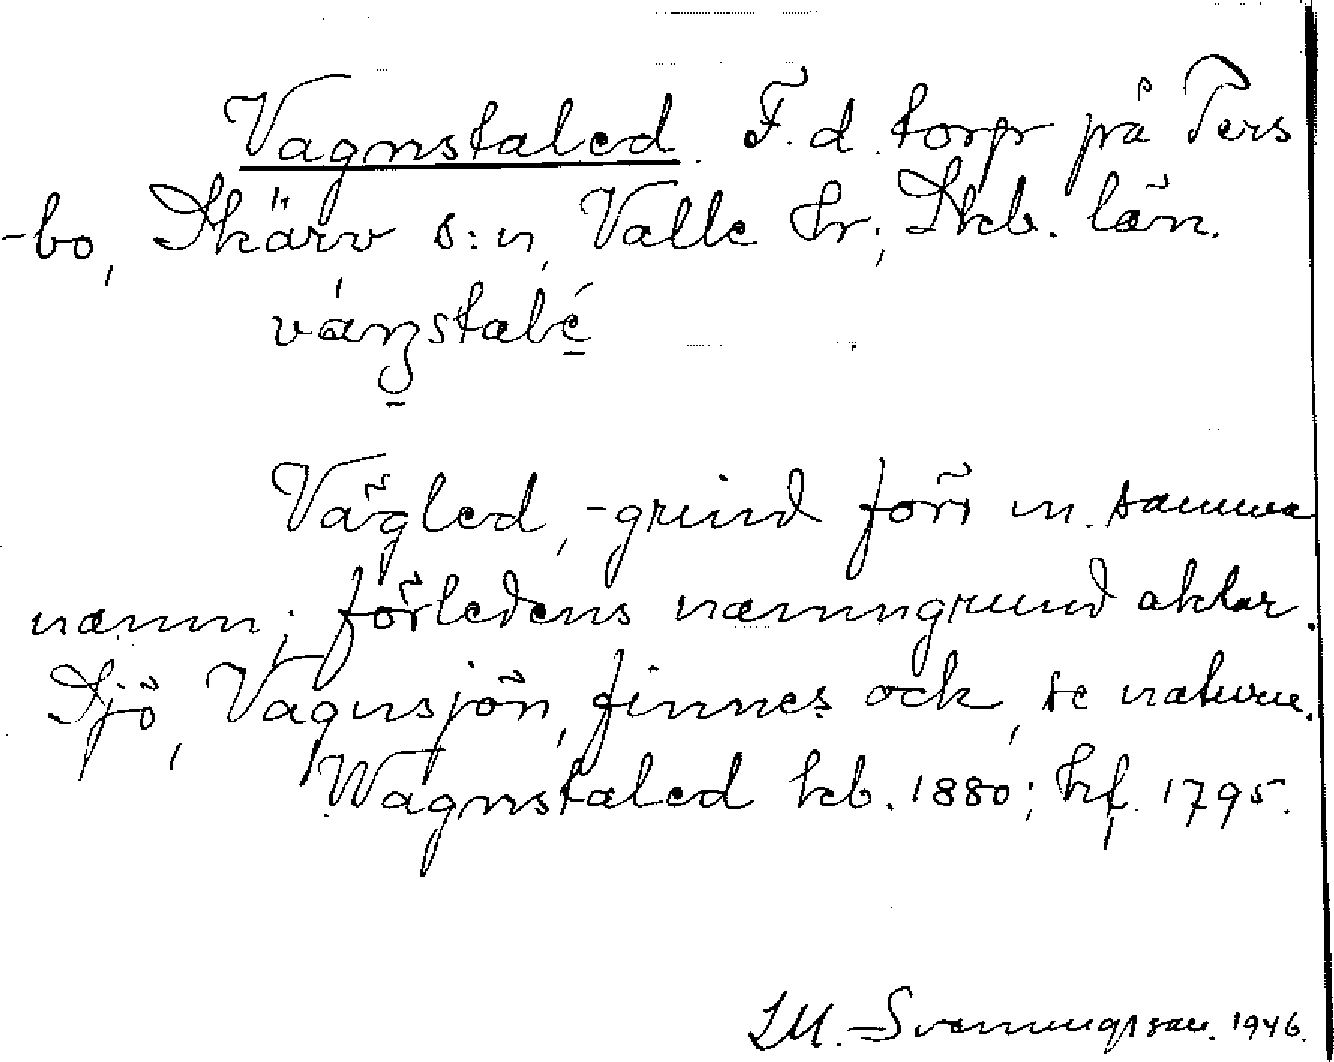 Vagnstaled. F.d. torp på Pers
-bo, Skärv s:n, Valle hr; Skb. län.
vágstalé
Vägled, -grind förr m. samma
namn; förledens namngrund oklar.
Sjö, Vagnsjön, finnes ock, se naturn.
Wagnstaled kb. 1880; hf. 1795.
LM. Svanungsson. 1946.